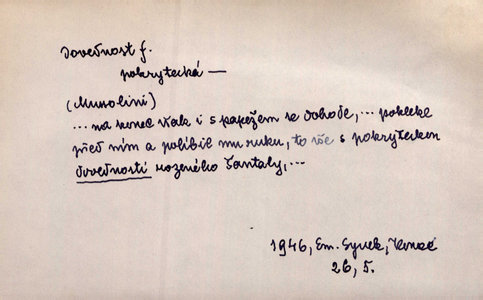 Dovednost f.
pokrytecká —
(Musolini)
... na konec však i s papežem se dohodl, ... poklekl
před ním a políbil mu ruku, to vše s pokryteckou
dovedností rozeného šantaly, ...
1946, Em. Synek,
26, 5.